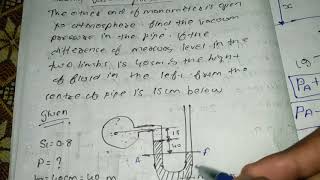 The other end of manometer is open
to atmosphere find the vacuum
pressure in the pipe. if the
difference of mercury level in the
two limbs is 40cm & the hight
of fluid in the left from the
centre of pipe is 15cm below
Given
S1=0.8
P=?
h=40cm=40 m
15
40
A
PA+
PA+